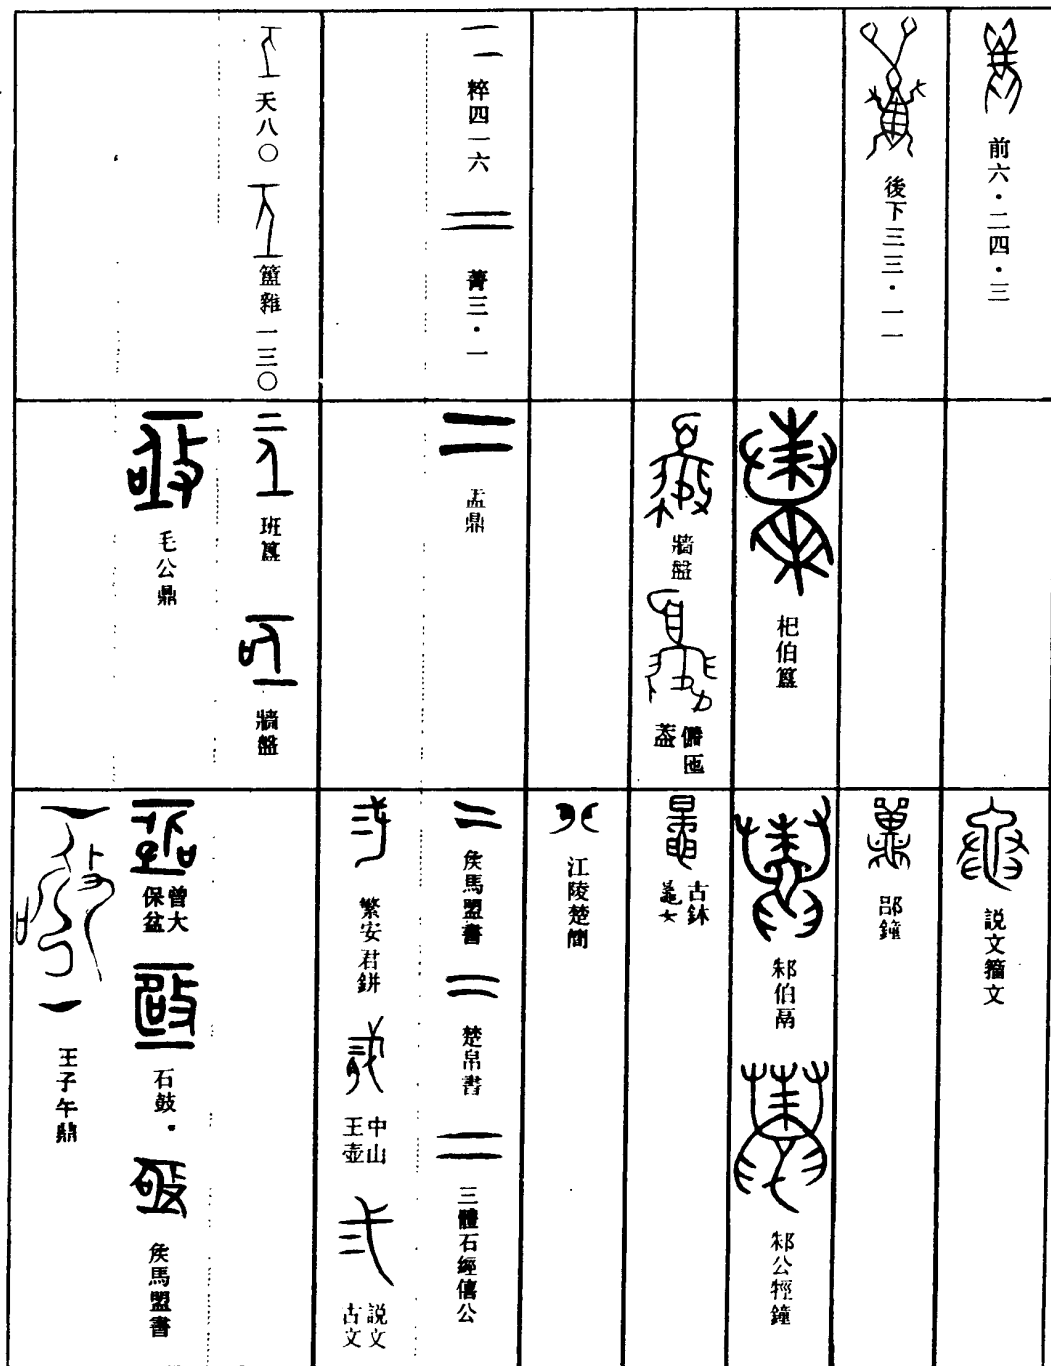 前六・二四・三
後下三三・一一
粹四一六
菁三・一
天八〇
簠雜一三〇
杞伯簋
牆盤
匜
蓋
盂鼎
班簋
牆盤
毛公鼎
説文籀文
郘鐘
邾伯鬲
邾公牼鐘
古鉢
江陵楚簡
侯馬盟書
楚帛書
三體石經僖公
繁安君鉼
中山
王壺
説文
古文
曾大
保盆
石鼓・
侯馬盟書
王子午鼎